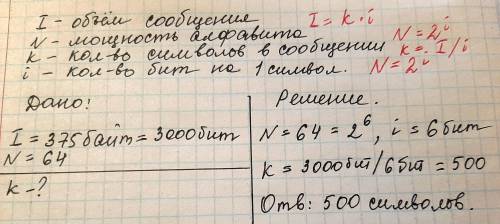 I - объём сообщения I = k · i
N - мощность алфавита N = 2^i
k - кол-во символов в сообщении k = I/i
i - кол-во бит на 1 символ. N = 2^i
Дано:
I = 375 байт = 3000 бит
N = 64
k - ?
Решение.
N = 64 = 2^6, i = 6 бит
k = 3000 бит / 6 бит = 500
Отв: 500 символов.